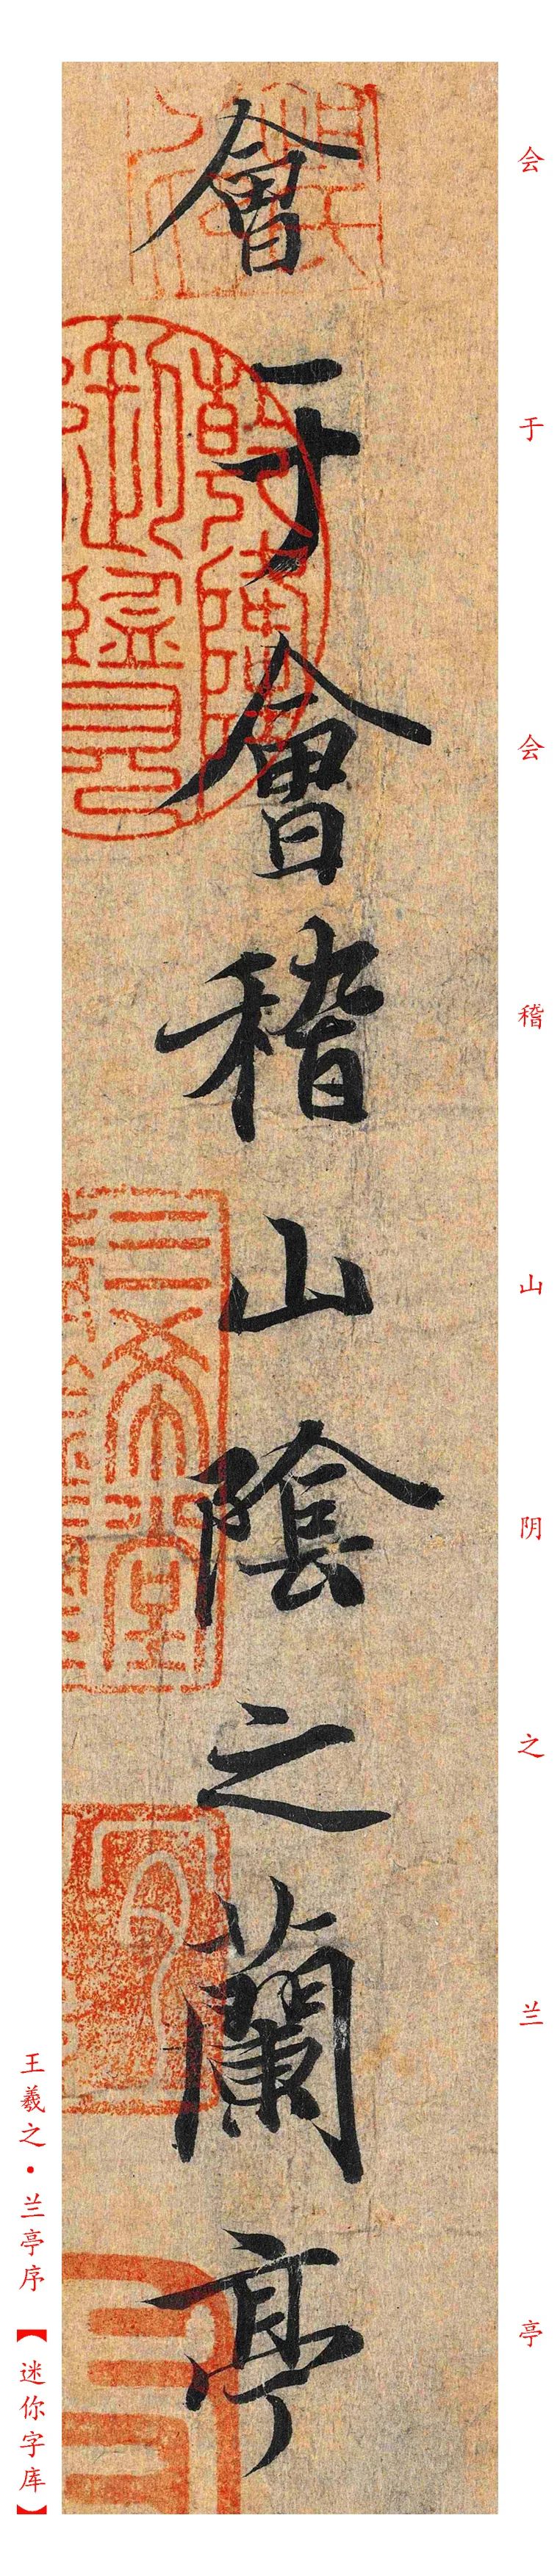 會于會稽山陰之蘭亭
会于会稽山阴之兰亭
王羲之·兰亭序【迷你字库】